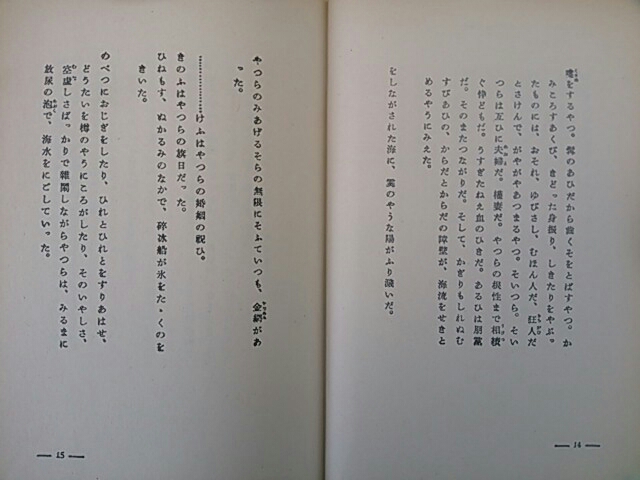 嚏をするやつ。髯のあひだから歯くそをとばすやつ。か
みころすあくび、きどった身振り、しきたりをやぶっ
たものには、おそれ、ゆびさし、むほん人だ、狂人だ
とさけんで、がやがやあつまるやつ。そいつら。そい
つらは互ひに夫婦だ。権妻だ。やつらの根性まで相続
ぐ倅どもだ。うすぎたねえ血のひきだ。あるひは朋党
だ。そのまたつながりだ。そして、かぎりもしれぬむ
すびあひの、からだとからだの障壁が、海流をせきと
めるやうにみえた。
をしながされた海に、霙のやうな陽がふり濺いだ。
— 14 —
やつらのみあげるそらの無限にそふていつも、金網があ
った。
…………けふはやつらの婚姻の祝ひ。
きのふはやつらの旗日だった。
ひねもす、ぬかるみのなかで、砕氷船が氷をたゝくのを
きいた。
のべつにおじぎをしたり、ひれとひれとをすりあはせ、
どうたいを樽のやうにころがしたり、そのいやしさ、
空虚しさばっかりで雑閙しながらやつらは、みるまに
放尿の泡で、海水をにごしていった。
— 15 —